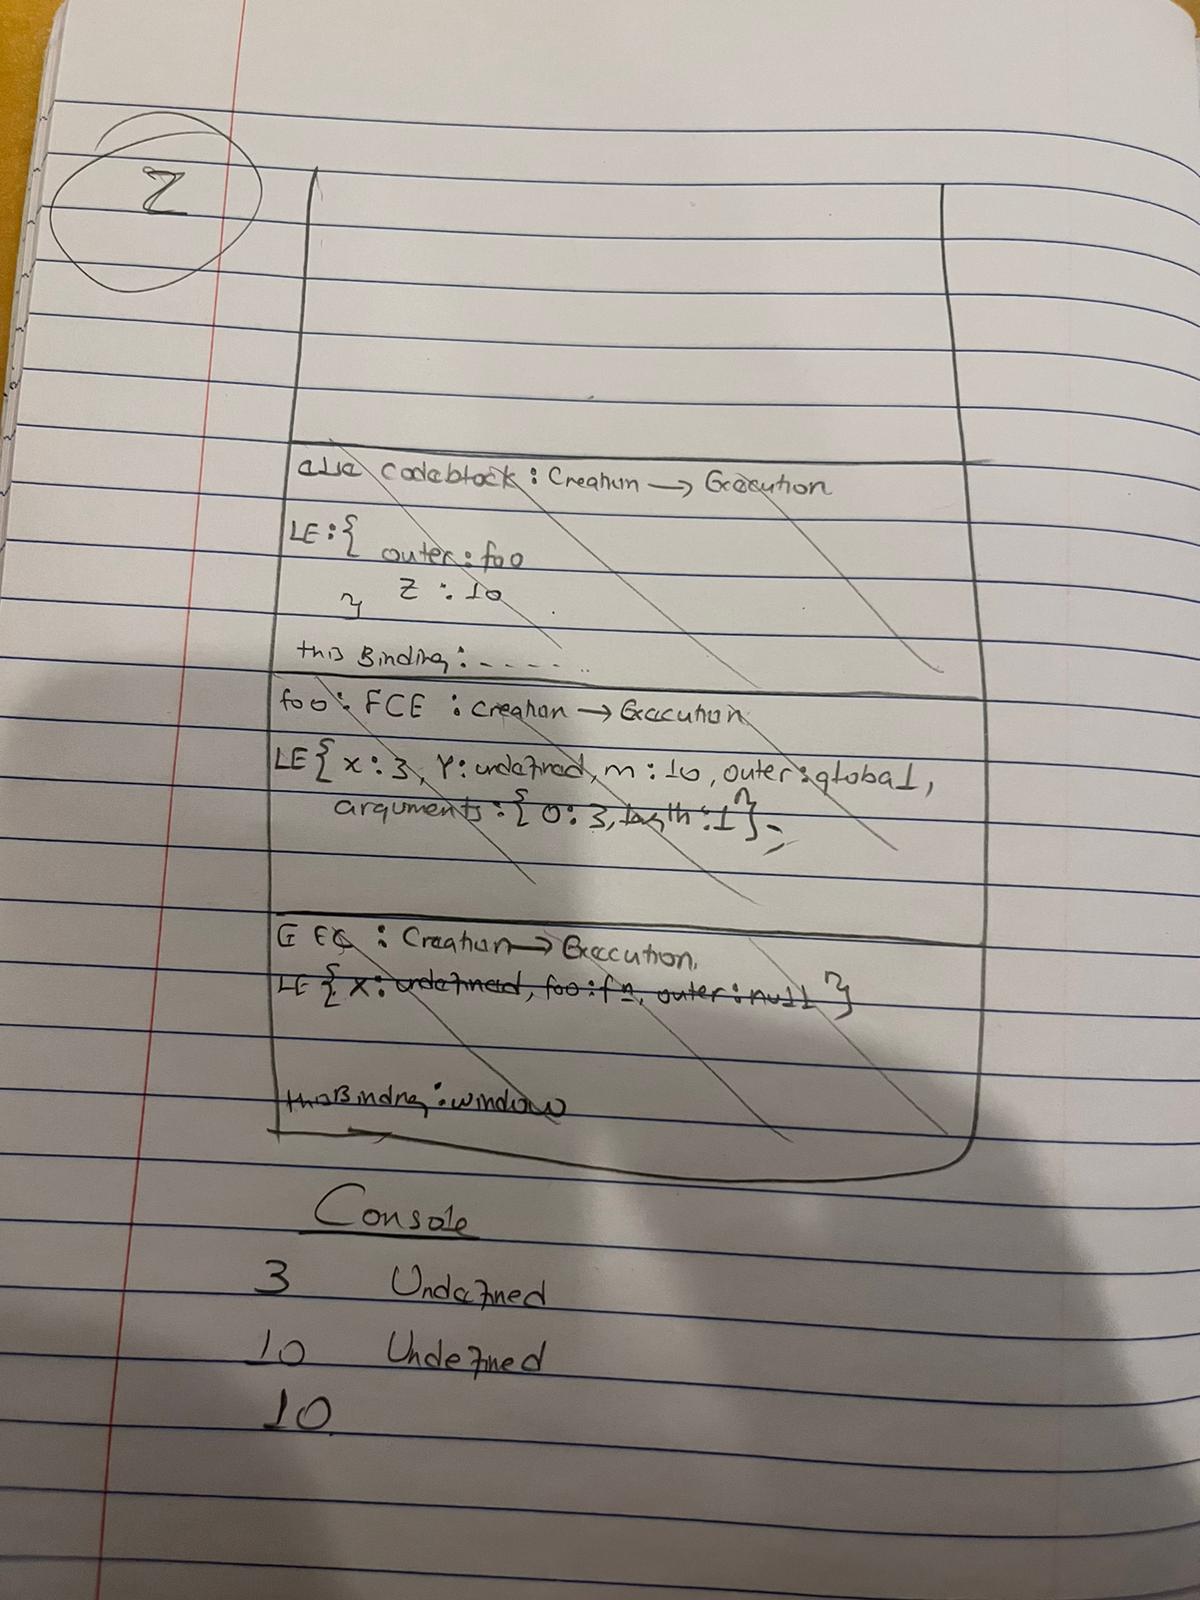 2
else codeblock : Creation → Execution
LE : {
outer : foo
Z : 10
}
this Binding : - - - - - . .
foo : FCE : Creation → Execution
LE { x : 3, Y : undefined, m : 10, outer : global,
arguments : { 0 : 3, length : 1 } } ;
GEC : Creation → Execution.
LE { x : undefined, foo : fn, outer : null }
this Binding : window
Console
3 Undefined
10 Undefined
10